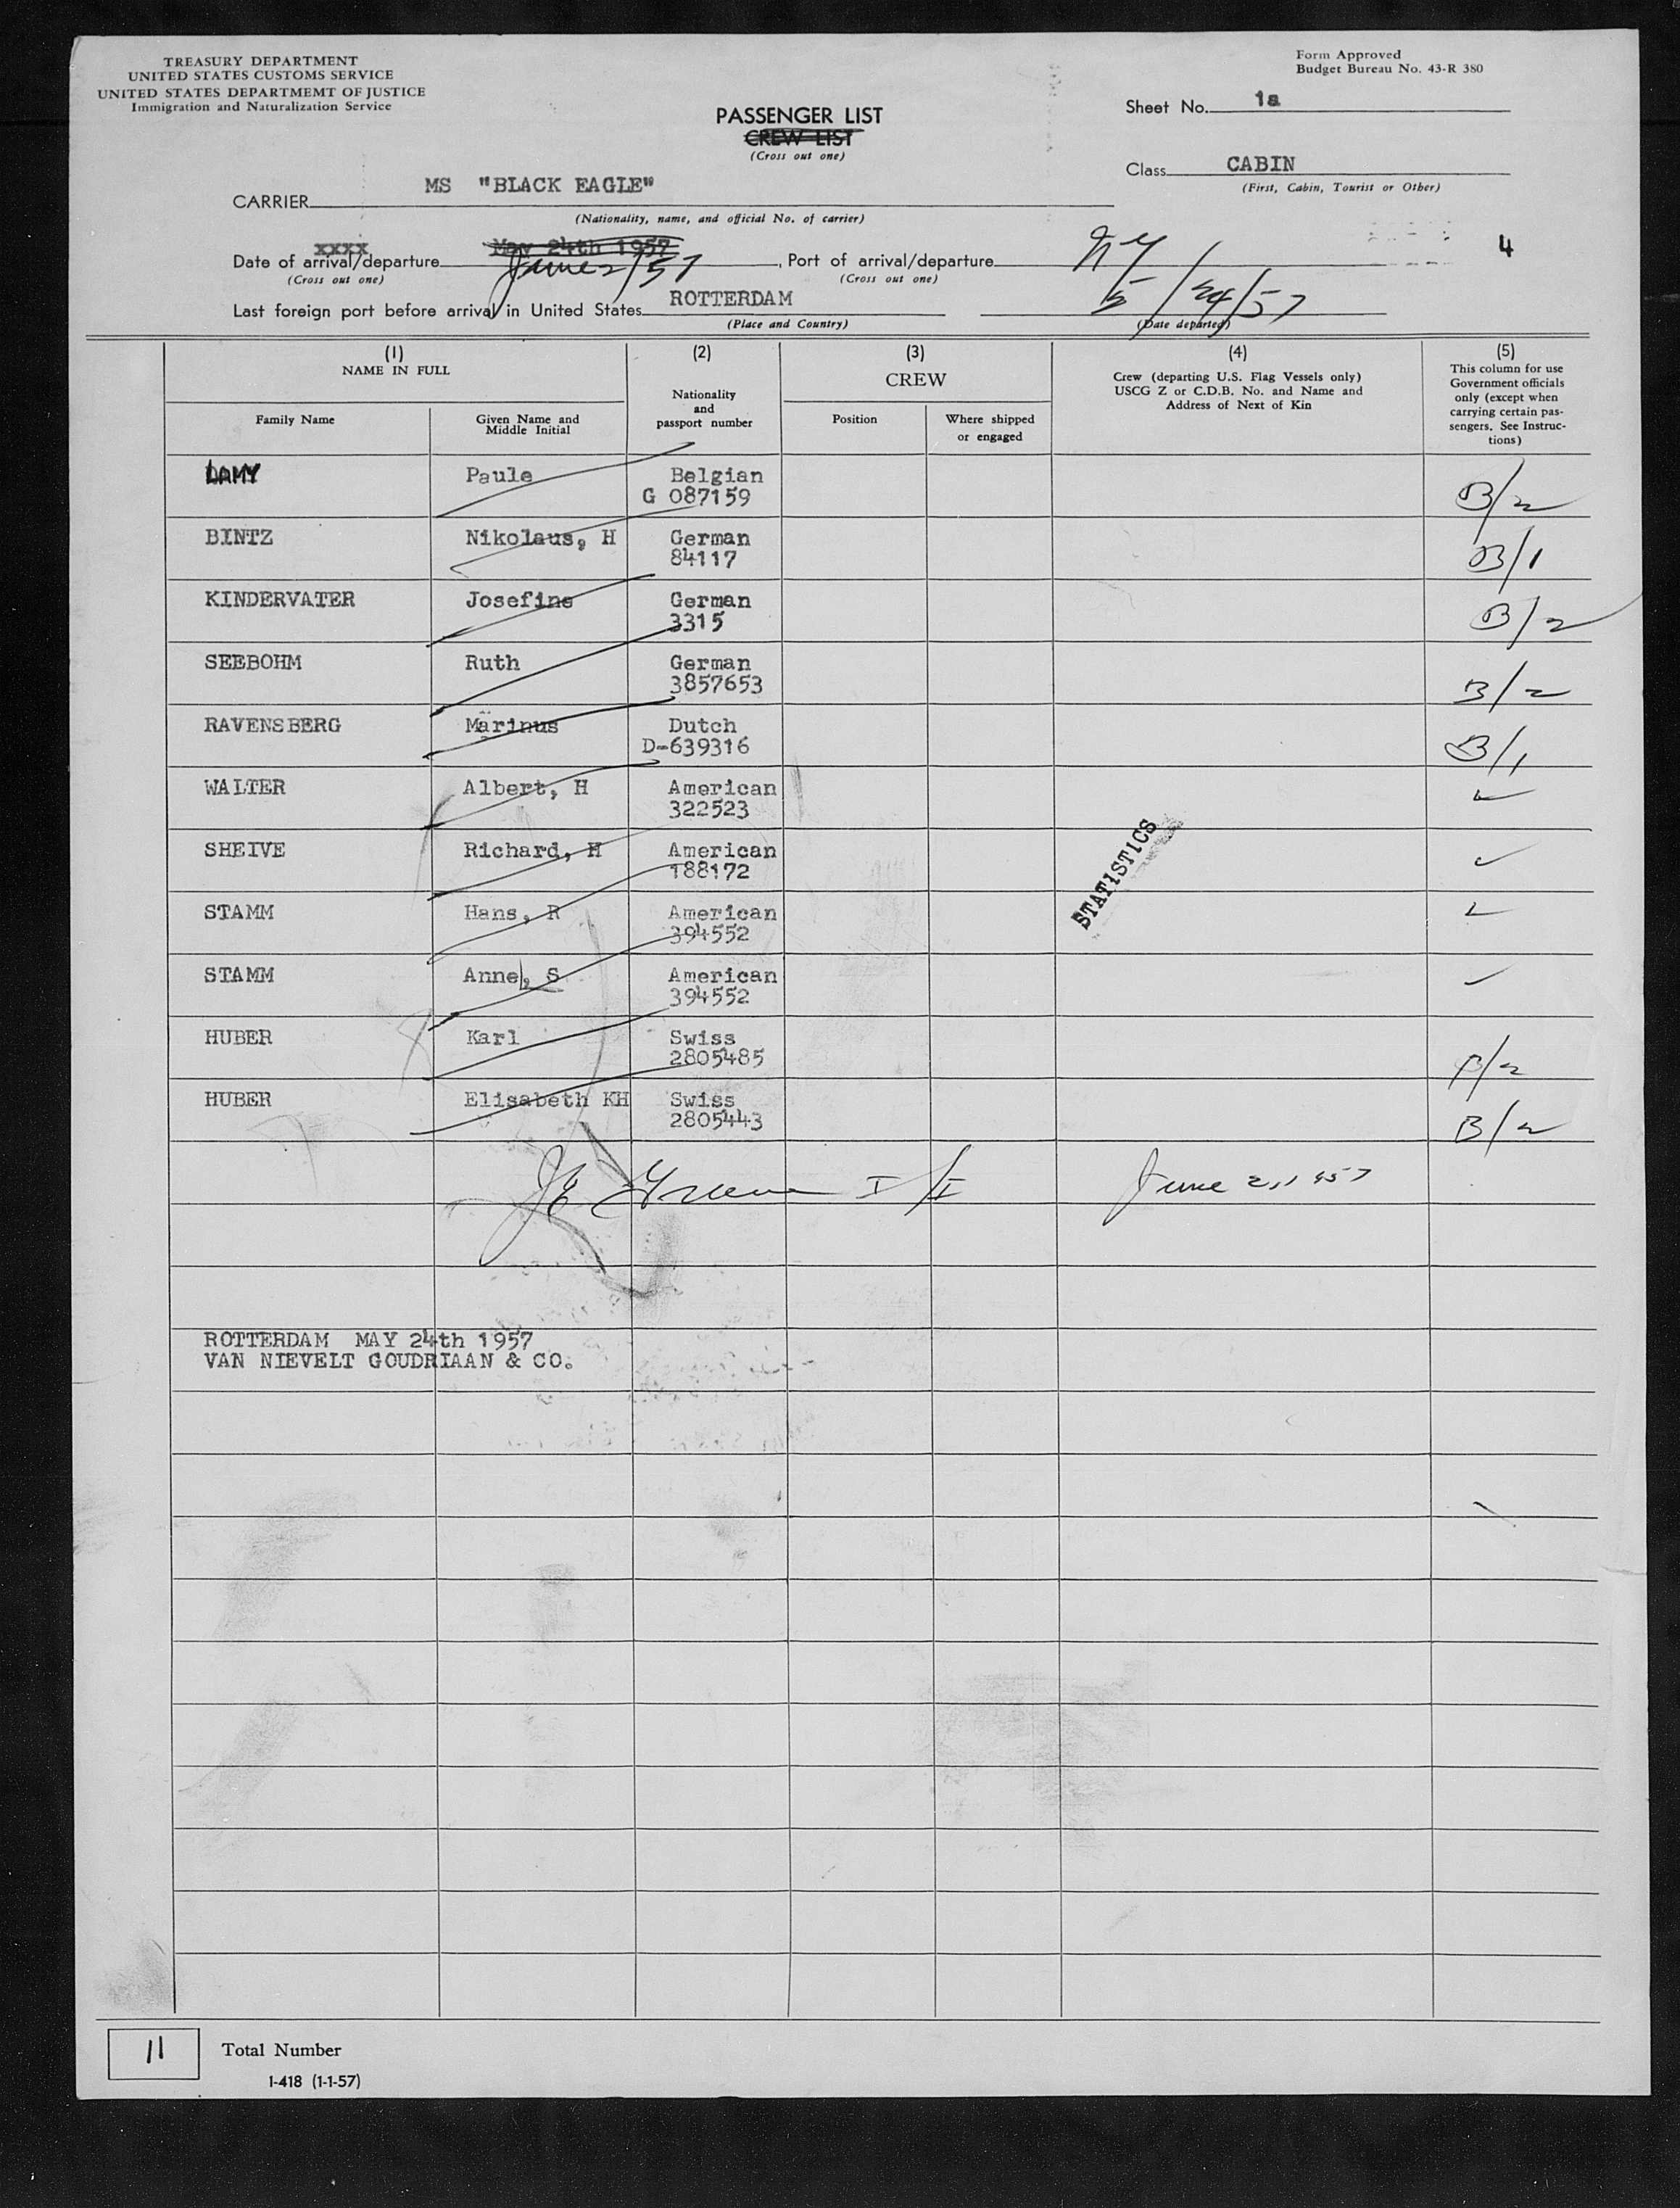 TREASURY DEPARTMENT
UNITED STATES CUSTOMS SERVICE
UNITED STATES DEPARTMEMT OF JUSTICE
Immigration and Naturalization Service
Form Approved
Budget Bureau No. 43-R 380
Sheet No. 1a
PASSENGER LIST
CREW LIST
(Cross out one)
Class CABIN
(First, Cabin, Tourist or Other)
CARRIER MS "BLACK EAGLE"
(Nationality, name, and official No. of carrier)
xxxx May 24th 1957
Date of arrival/departure June 2/57, Port of arrival/departure NY 4
(Cross out one) (Cross out one)
Last foreign port before arrival in United States ROTTERDAM 5/24/57
(Place and Country) (Date departed)
(1) NAME IN FULL
Family Name
Given Name and Middle Initial
(2) Nationality and passport number
(3) CREW
Position
Where shipped or engaged
(4) Crew (departing U.S. Flag Vessels only) USCG Z or C.D.B. No. and Name and Address of Next of Kin
(5) This column for use Government officials only (except when carrying certain pas- sengers. See Instruc- tions)
LAMY Paule Belgian
G 087159 B/2
BINTZ Nikolaus, H German
84117 B/1
KINDERVATER Josefine German
3315 B/2
SEEBOHM Ruth German
3857653 B/2
RAVENSBERG Marinus Dutch
D-639316 B/1
WALTER Albert, H American
322523
SHEIVE Richard, H American
188172
STATISTICS
STAMM Hans, R American
394552
STAMM Anne, S American
394552
HUBER Karl Swiss
2805485 B/2
HUBER Elisabeth KH Swiss
2805443 B/2
I/I June 2, 1957
ROTTERDAM MAY 24th 1957
VAN NIEVELT GOUDRIAAN & CO.
11 Total Number
I-418 (1-1-57)